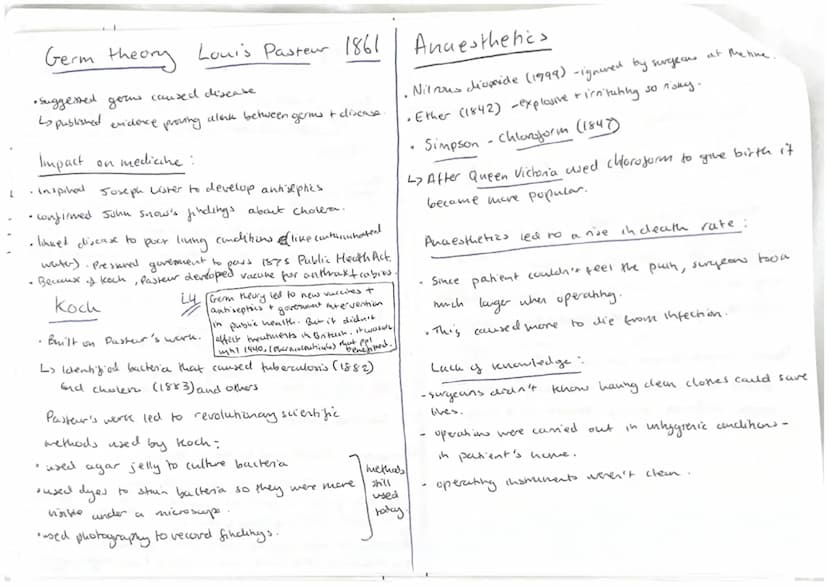 Germ theory Louis Pasteur 1861
• suggested germs caused disease
↳ published evidence proving a link between germs + disease.
Impact on medicine:
• Inspired Joseph Lister to develop antiseptics
• confirmed John Snow's findings about cholera.
• linked disease to poor living conditions (like contaminated
water). Pressured government to pass 1875 Public Health Act.
• Because of Koch, Pasteur developed vaccine for anthrax + rabies.
Koch
Germ theory led to new vaccines +
antiseptics + government intervention
in public health. But it didn't
affect treatments in Britain. It was
until 1940, that ppl
benefitted.
• Built on Pasteur's work.
↳ Identified bacteria that caused tuberculosis (1882)
and cholera (1883) and others
Pasteur's work led to revolutionary scientific
methods used by Koch:
• used agar jelly to culture bacteria
• used dyes to stain bacteria so they were more
visible under a microscope.
• used photography to record findings.
methods
still
used
today.
Anaesthetics
• Nitrous dioxide (1799) - ignored by surgeons at the time.
• Ether (1842) - explosive + irritating so risky.
• Simpson - Chloroform (1847)
↳ After Queen Victoria used chloroform to give birth it
became more popular.
Anaesthetics led to a rise in death rate:
• Since patient couldn't feel the pain, surgeons took
much longer when operating.
• This caused more to die from infection.
Lack of knowledge:
- surgeons didn't know having clean clothes could save
lives.
- operations were carried out in unhygienic conditions -
in patient's home.
- operating instruments weren't clean.